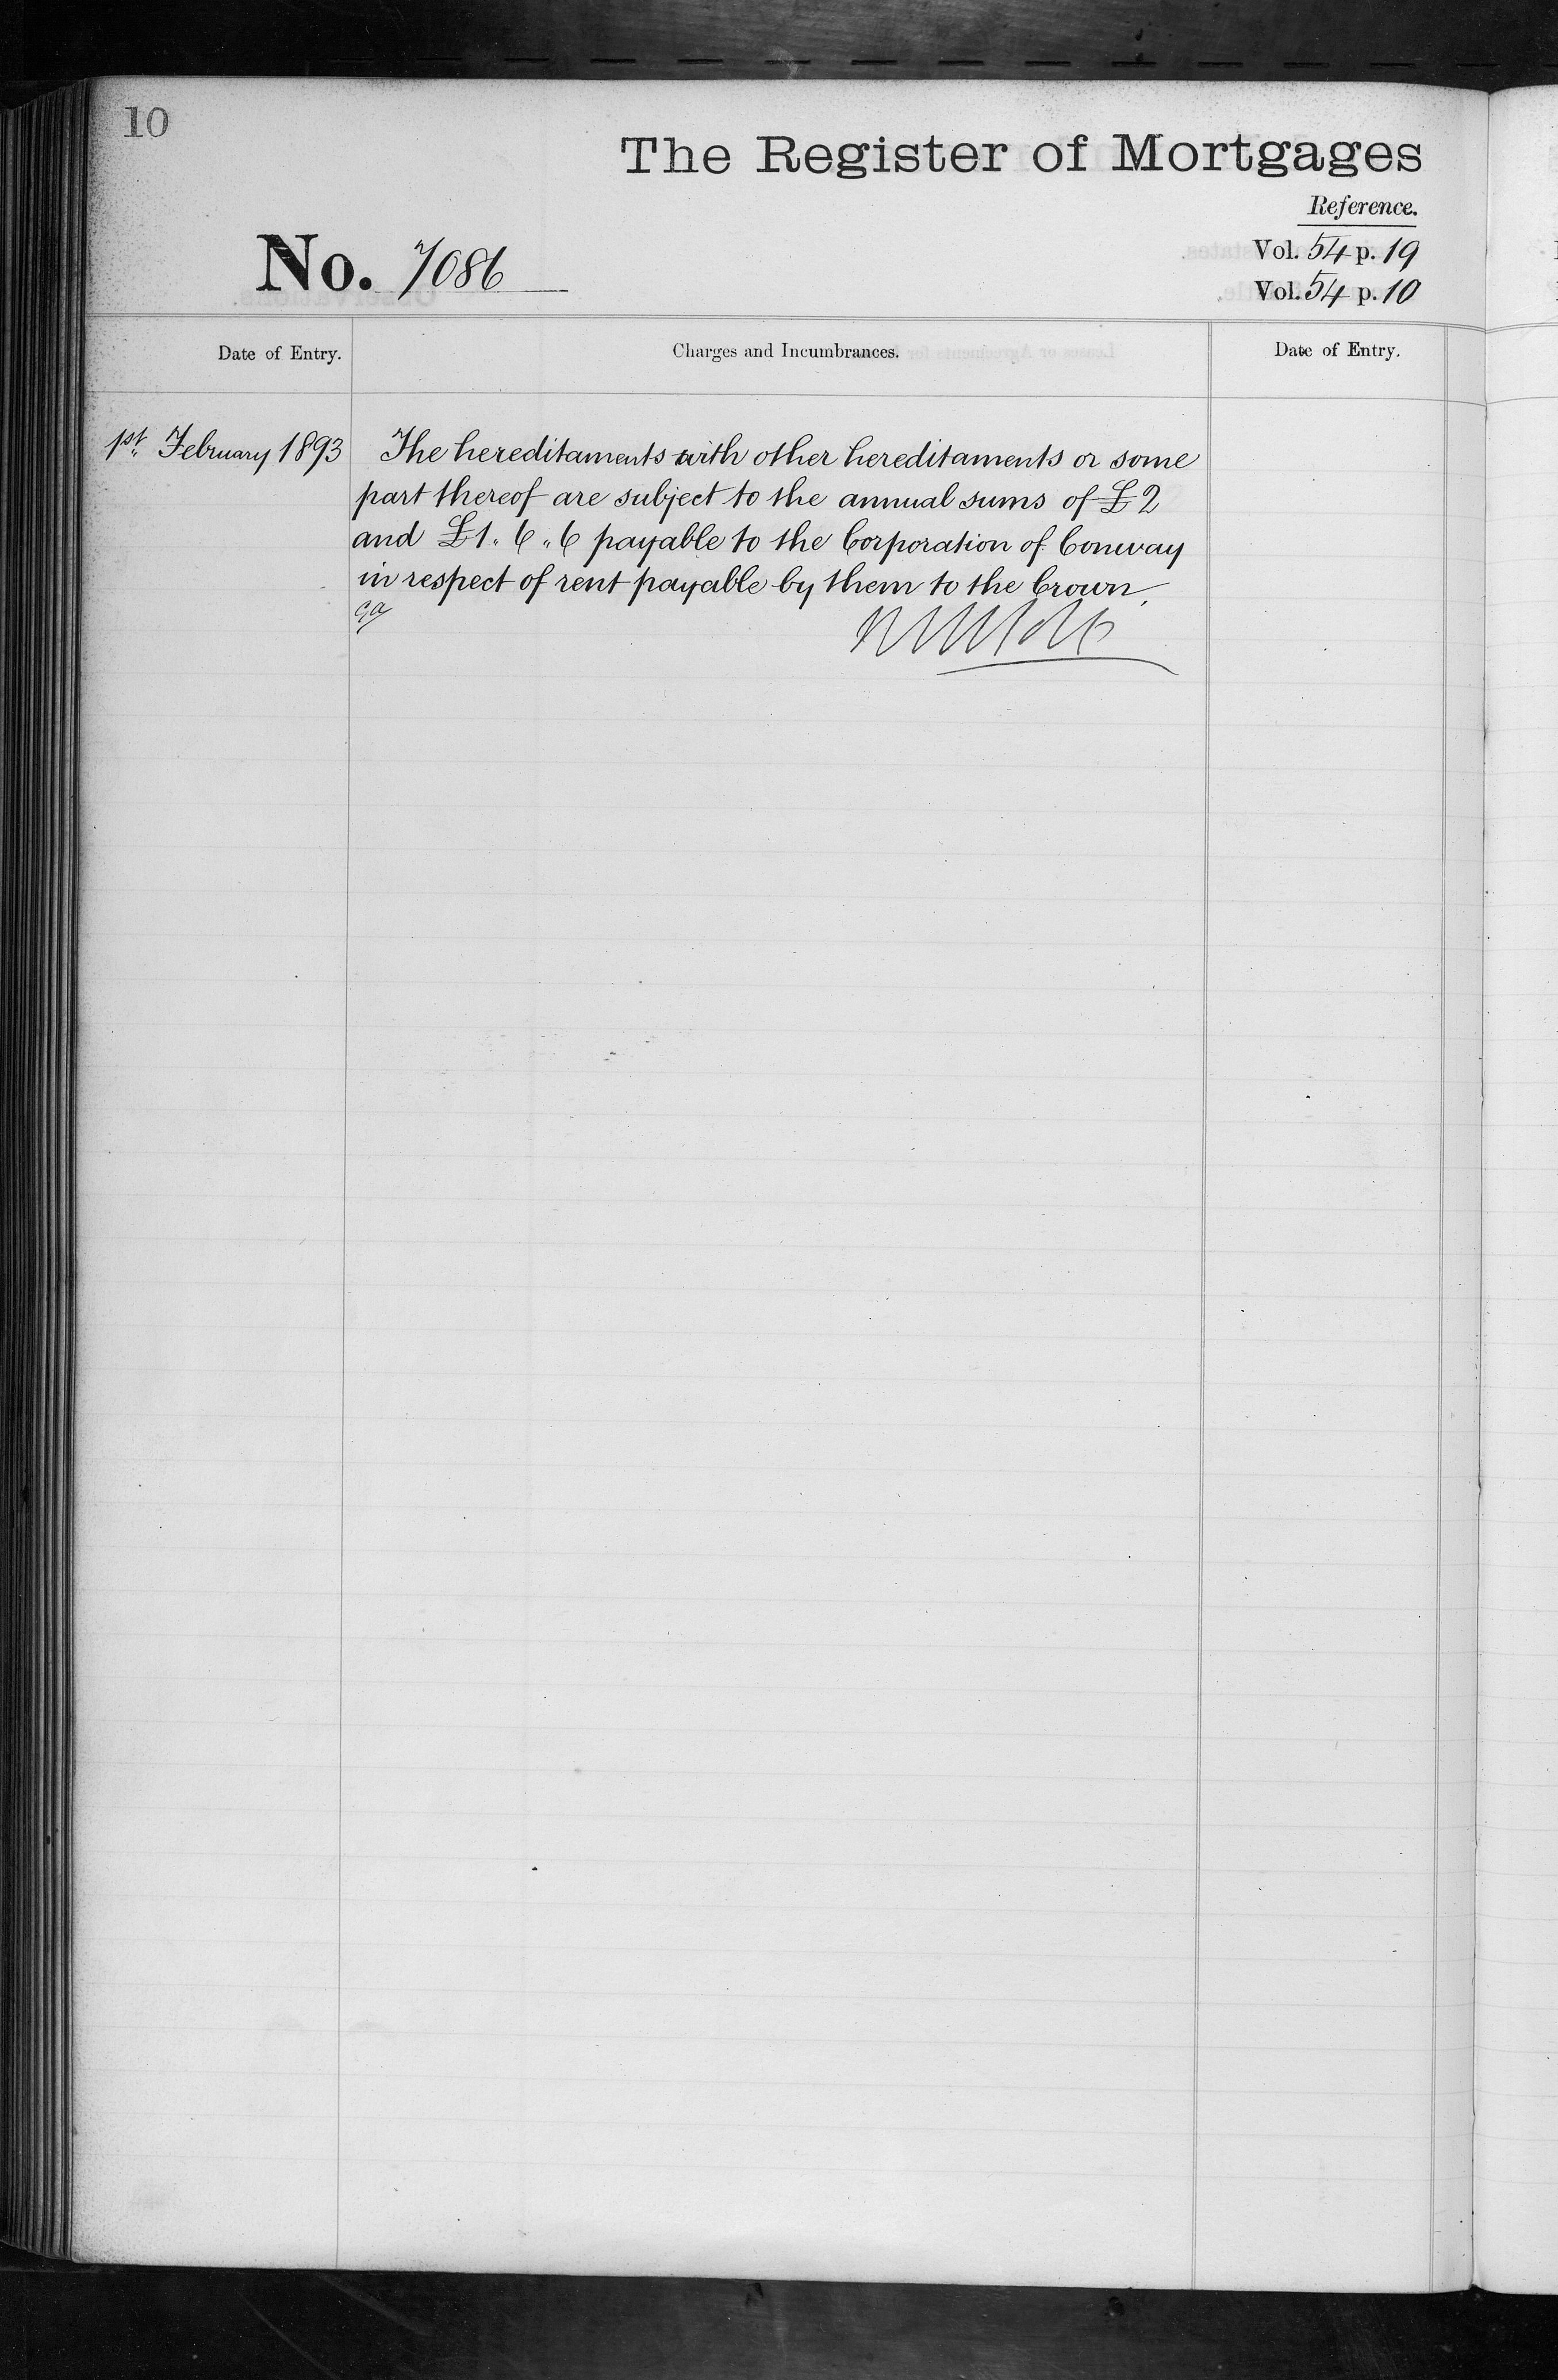 10
The Register of Mortgages
Reference.
No. 7086
Vol. 54 p. 19
Vol. 54 p. 10
Date of Entry.
Charges and Incumbrances.
Date of Entry.
1st February 1893
The hereditaments with other hereditaments or some
part thereof are subject to the annual sums of £2
and £1. 6. 6 payable to the Corporation of Conway
in respect of rent payable by them to the Crown.